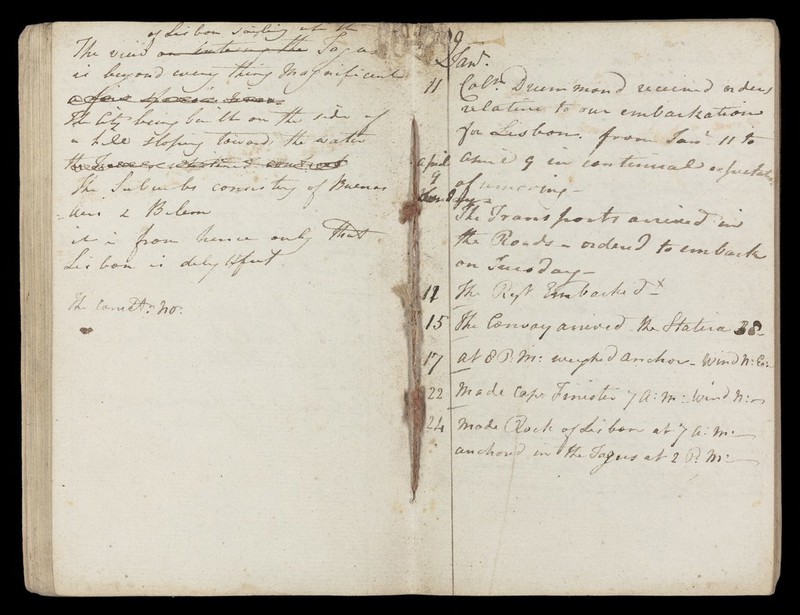 of Lisbon sailing up the
The view on entering the Tagus
is beyond every thing Magnificent
The City being built on the side of
a hill sloping towards the water
The Suburbs consisting of Buenos
Ares & Belem
it is from hence only that
Lisbon is delightful
The Convt. No:
9
Jany.
11 Coll. Drummond received orders
relative to our embarkation
for Lisbon. from Jany 11 to
April 9 in continual expectation
of removing -
april
9
Sunday -
The Transports arrived in
the Roads - orderd to embark
on Tuesday -
11 The Regt Embarked x
15 The Convoy arrived the Statira 38 -
17 at 8 P.M: weighed anchor - Wind N: E:
22 Made Cape Finister 7 A: M: Wind N:
24 Made Rock of Lisbon at 7 A: M: -
anchord in the Tagus at 2 P: M: -